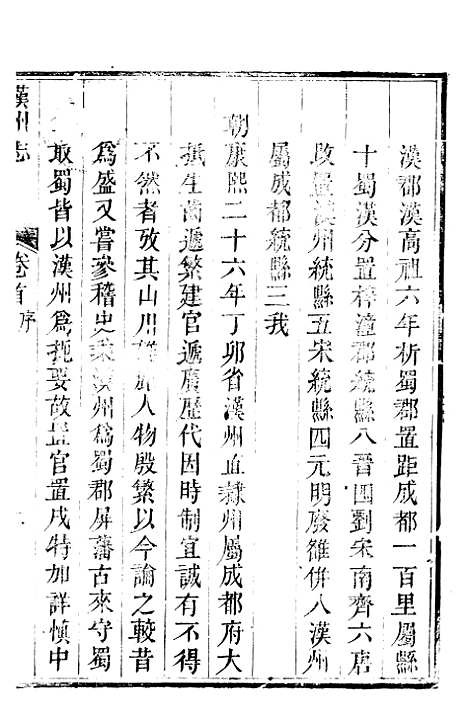 漢郡漢高祖六年析蜀郡置距成都一百里屬縣
十蜀漢分置梓潼郡統縣八晉四劉宋南齊六唐
改置漢州統縣五宋統縣四元明廢雒併入漢州
屬成都統縣三我
朝康熙二十六年丁卯省漢州直隸州屬成都府大
抵生齒遞繁建官遞廣歷代因時制宜誠有不得
不然者攷其山川雄於人物殷繁以今論之較昔
為盛又嘗參稽史乘漢州為蜀郡屏藩古來守蜀
取蜀皆以漢州為扼要故置官置戍特加詳慎中
漢州志
卷首序